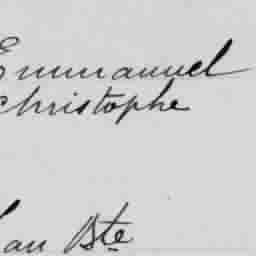 Emmanuel
Christophe
Jan Bte